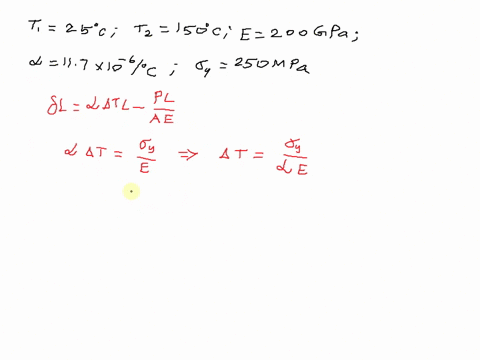 T₁ = 25°C ; T₂ = 150°C ; E = 200 GPa ;
α = 11.7 × 10⁻⁶/°C ; σy = 250 MPa
δL = α ΔT L − PL/AE
α ΔT = σy/E ⇒ ΔT = σy/αE